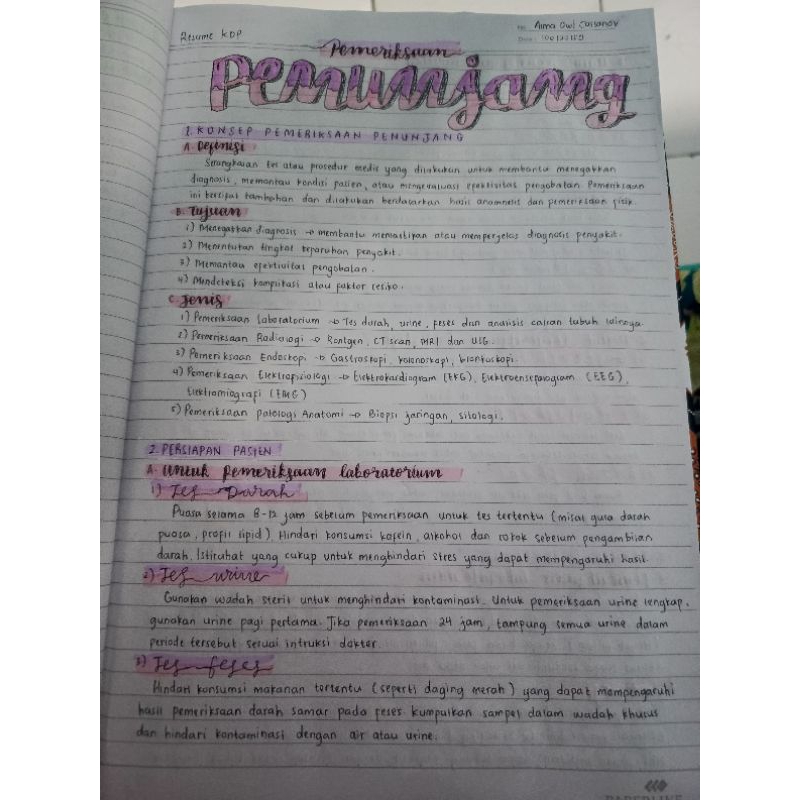 Resume KDP
No. Alma Dwi
Date.
Pemeriksaan
Penunjang
1. KONSEP PEMERIKSAAN PENUNJANG
A. Definisi
Serangkaian tes atau prosedur medis yang dilakukan untuk membantu menegakkan
diagnosis, memantau kondisi pasien, atau mengevaluasi efektivitas pengobatan. Pemeriksaan
ini bersifat tambahan dan dilakukan berdasarkan hasil anamnesis dan pemeriksaan fisik.
B. Tujuan
1) Menegakkan diagnosis → membantu memastikan atau memperjelas diagnosis penyakit.
2) Menentukan tingkat keparahan penyakit.
3) Memantau efektivitas pengobatan.
4) Mendeteksi komplikasi atau faktor resiko.
C. Jenis
1) Pemeriksaan Laboratorium → Tes darah, urine, feses dan analisis cairan tubuh lainnya.
2) Pemeriksaan Radiologi → Rontgen, CT scan, MRI dan USG.
3) Pemeriksaan Endoskopi → Gastroskopi, kolonoskopi, bronkoskopi.
4) Pemeriksaan Elektrofisiologi → Elektrokardiogram (EKG), Elektroensefalogram (EEG),
Elektromiografi (EMG)
5) Pemeriksaan patologi Anatomi → Biopsi jaringan, sitologi.
2. PERSIAPAN PASIEN
A. Untuk pemeriksaan laboratorium
1) Tes Darah
Puasa selama 8-12 jam sebelum pemeriksaan untuk tes tertentu (misal gula darah
puasa, profil lipid). Hindari konsumsi kafein, alkohol dan rokok sebelum pengambilan
darah. Istirahat yang cukup untuk menghindari stres yang dapat mempengaruhi hasil.
2) Tes urine
Gunakan wadah steril untuk menghindari kontaminasi. Untuk pemeriksaan urine lengkap,
gunakan urine pagi pertama. Jika pemeriksaan 24 jam, tampung semua urine dalam
periode tersebut sesuai intruksi dokter.
3) Tes feses
Hindari konsumsi makanan tertentu (seperti daging merah) yang dapat mempengaruhi
hasil pemeriksaan darah samar pada feses. Kumpulkan sampel dalam wadah khusus
dan hindari kontaminasi dengan air atau urine.
PAPERLINE